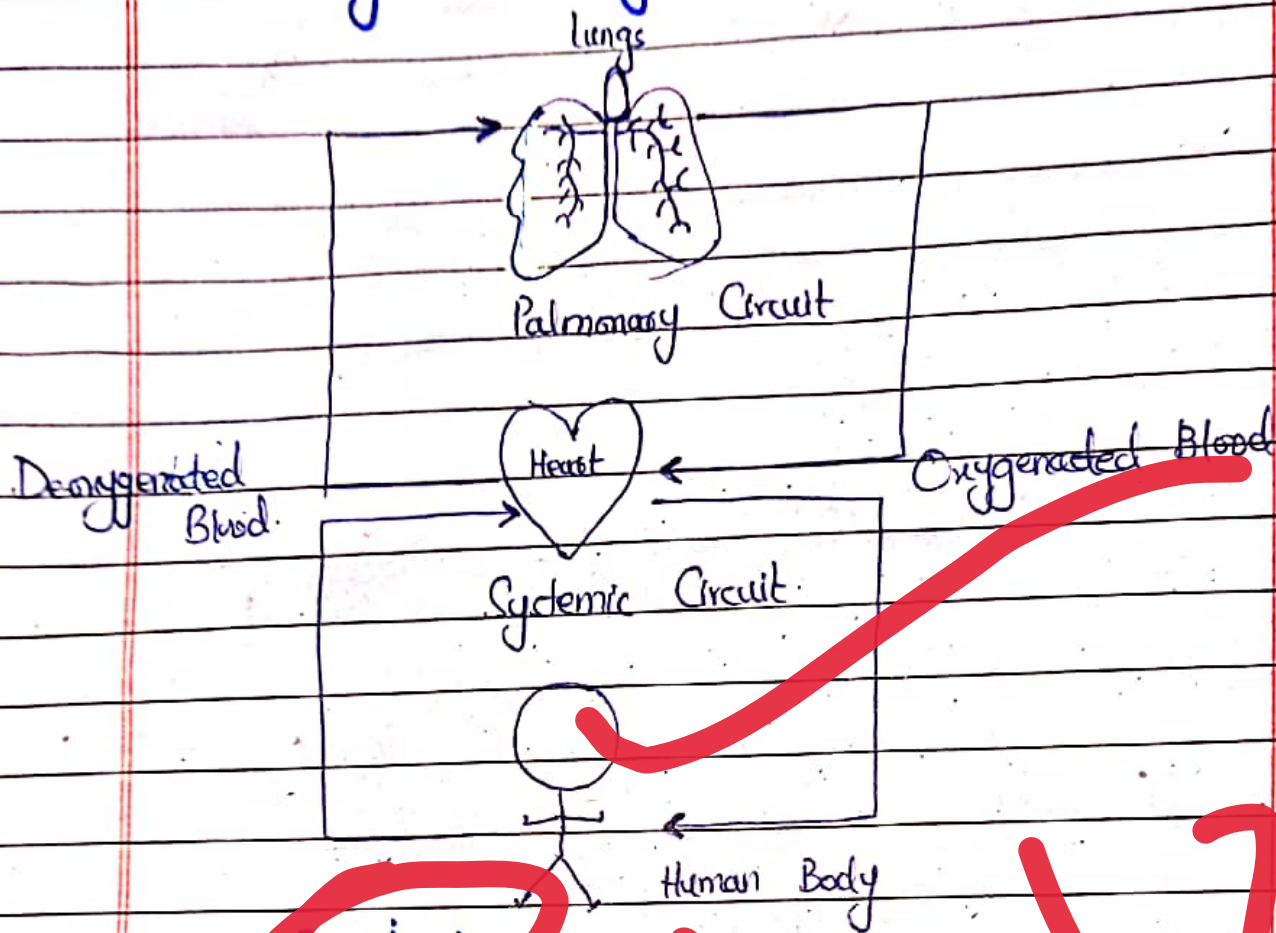 lungs
Palmonary Circuit
Heart
Deoxygenated
Blood.
Oxygenacted Blood
Systemic Circuit.
Human Body